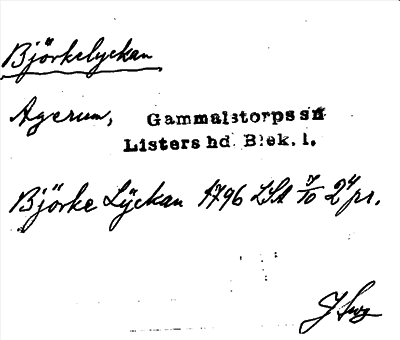 Björkelyckan
Agerum, Gammalstorps sn
Listers hd. Blek. l.
Björke Lÿckan 1796 LSA 7/10 24 pr.